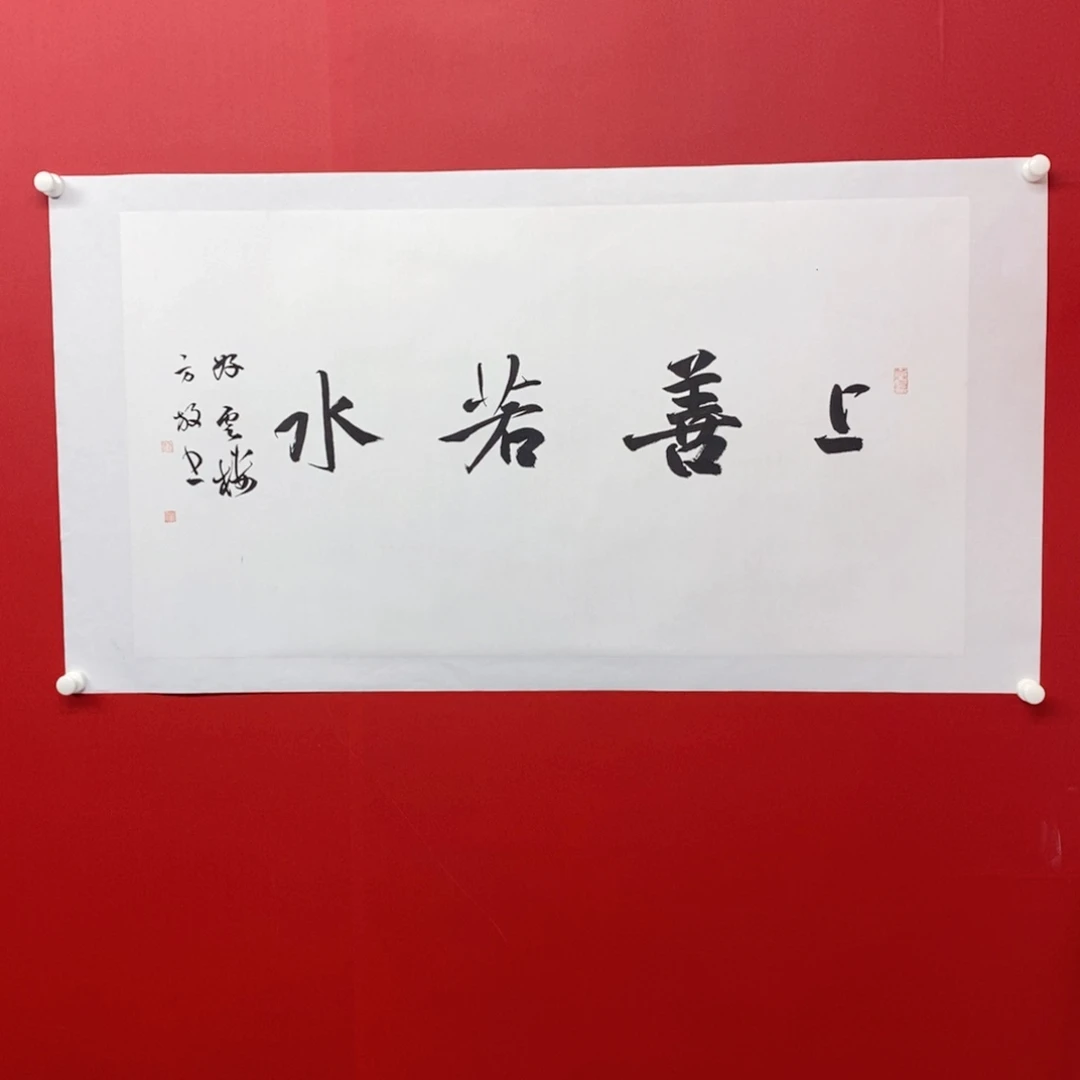 上善若水
好雲樓
方放書